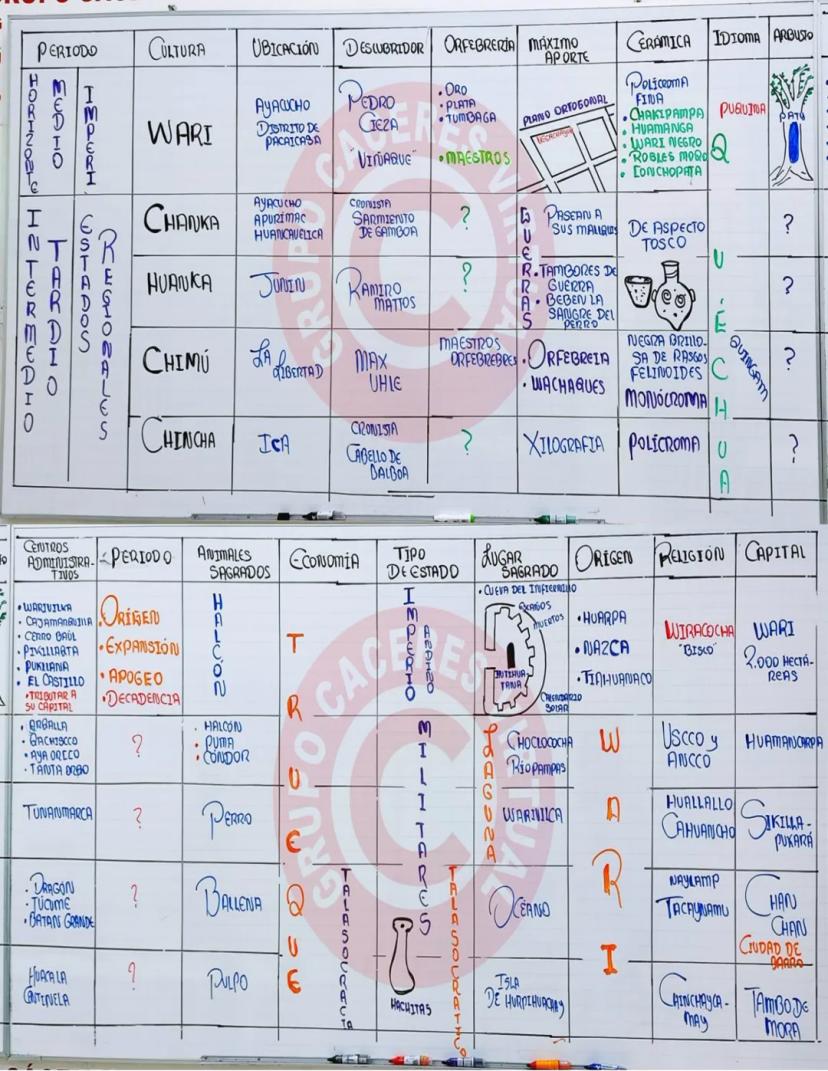 PERIODO
CULTURA
UBICACIÓN
DESCUBRIDOR
ORFEBRERÍA
MÁXIMO
APORTE
CERÁMICA
IDIOMA
ARBUSTO
HORIZONTE
MEDIO
IMPERI
WARI
AYACUCHO
DISTRITO DE
PACAICASA
PEDRO
CIEZA
"VIÑAQUE"
• ORO
• PLATA
• TUMBAGA
• MAESTROS
PLANO ORTOGONAL
POLÍCROMA
FINA
• CHAKIPAMPA
• HUAMANGA
• WARI NEGRO
• ROBLES MORO
• CONCHOPATA
PUQUINA
QUÉCHUA
PATY
INTERMEDIO
TARDIO
ESTADOS
REGIONALES
CHANKA
AYACUCHO
APURÍMAC
HUANCAVELICA
CRONISTA
SARMIENTO
DE GAMBOA
?
GUERRAS
PASEAN A
SUS MALLQUIS
DE ASPECTO
TOSCO
?
HUANKA
JUNIN
RAMIRO
MATTOS
?
• TAMBORES DE
GUERRA
• BEBEN LA
SANGRE DEL
PERRO
?
CHIMÚ
LA LIBERTAD
MAX
UHLE
MAESTROS
ORFEBREBRES
• ORFEBREIA
• WACHAQUES
NEGRA BRILLO-
SA DE RASGOS
FELINOIDES
MONÓCROMA
QUINGAM
?
CHINCHA
ICA
CRONISTA
CABELLO DE
BALBOA
?
XILOGRAFIA
POLÍCROMA
?
CENTROS
ADMINISTRA-
TIVOS
PERIODO
ANIMALES
SAGRADOS
ECONOMÍA
TIPO
DE ESTADO
LUGAR
SAGRADO
ORIGEN
RELIGIÓN
CAPITAL
• WARIVILKA
• CAJAMARQUILLA
• CERRO BAÚL
• PIKILLAQTA
• PUKLLANA
• EL CASTILLO
• TRIBUTAR A
SU CAPITAL
• ORÍGEN
• EXPANSIÓN
• APOGEO
• DECADENCIA
HALCÓN
TRUEQUE
IMPERIO
ANDINO
• CUEVA DEL INFIERNILLO
MUERTOS
INTIHUA-
TANA
CALENDARIO
SOLAR
• HUARPA
• NAZCA
• TIAHUANACO
WIRACOCHA
"BISCO"
WARI
2.000 HECTÁ-
REAS
• GACHISCO
• AYA ORCCO
• TANTA ORQO
?
• HALCÓN
• PUMA
• CÓNDOR
MILITARES
LAGUNA
CHOCLOCOCHA
RIOPAMPAS
WARI
USCCO y
ANCCO
HUAMANCARPA
TUNANMARCA
?
PERRO
WARIVILCA
HUALLALLO
CAHUANCHO
SIKILLA-
PUKARÁ
• DRAGÓN
• TÚCUME
• BATÁN GRANDE
?
BALLENA
TALASOCRACIA
TALASOCRATICO
OCÉANO
NAYLAMP
TACAYNAMU
CHAN
CHAN
CIUDAD DE
BARRO
HUACA LA
CENTINELA
?
PULPO
HACHITAS
ISLA
CHINCHAYCA-
MAY
TAMBO DE
MORA
GRUPO CACERES VIRTUAL
GRUPO CACERES VIRTUAL